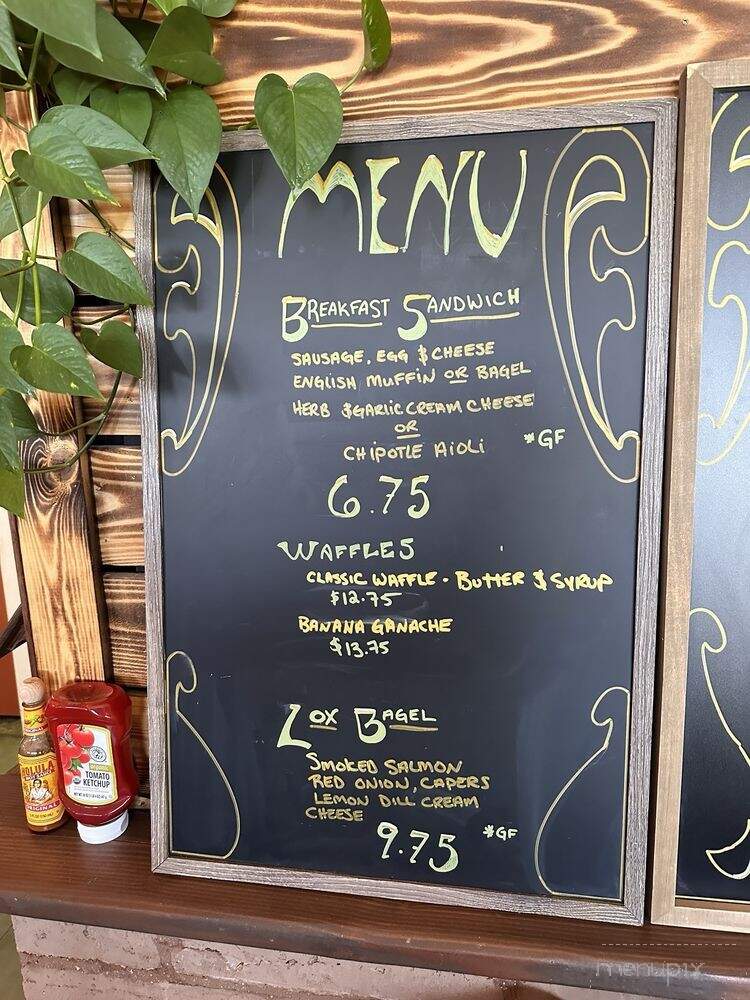 MENU
BREAKFAST SANDWICH
SAUSAGE, EGG & CHEESE
ENGLISH MUFFIN OR BAGEL
HERB & GARLIC CREAM CHEESE
OR
CHIPOTLE AIOLI *GF
6.75
WAFFLES
CLASSIC WAFFLE - BUTTER & SYRUP
$12.75
BANANA GANACHE
$13.75
LOX BAGEL
SMOKED SALMON
RED ONION, CAPERS
LEMON DILL CREAM
CHEESE
9.75 *GF
CHOLULA
ORIGINAL
ORGANIC
TOMATO
KETCHUP
menupix